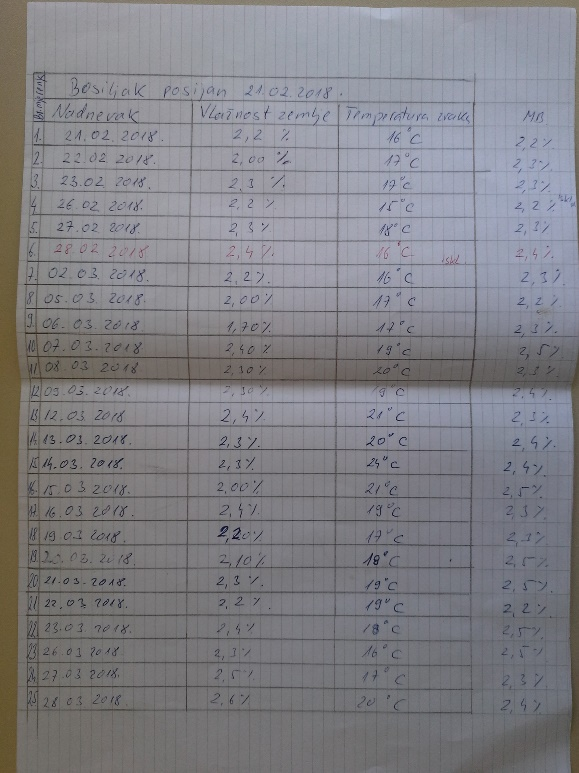 Bosiljak posijan 21.02.2018.
Nadnevak Vlažnost zemlje Temperatura zraka MB
1. 21.02.2018. 2,2 % 16°C 2,2%
2. 22.02 2018. 2,00 % 17°C 2,3%
3. 23.02 2018. 2,3 %. 17°C 2,3%
4. 26.02 2018. 2,2 % 15°C 2,2%
5. 27.02 2018. 2,3 %. 18°C 2,3%
6. 28 02 2018 2,4 %. 16°C 2,4%
7. 02.03.2018. 2,2 %. 16°C 2,3%
8. 05.03.2018. 2,00% 17°C 2,2%
9. 06.03.2018. 1,70% 17°C 2,3%
10. 07.03.2018. 2,40 % 19°C 2,5%
11. 08.03 2018. 2,30 % 20°C 2,3%
12. 09.03 2018. 2,30 % 2,4%
13. 12.03 2018 2,4% 21°C 2,3%
14. 13.03.2018. 2,3% 20°C 2,4%
15. 14.03.2018. 2,3% 24°C 2,4%
16. 15.03 2018. 2,00% 21°C 2,5%
17. 16.03 2018. 2,4% 19°C 2,3%
18 19 03 2018. 2,20% 17°C 2,3%
19. 2018. 2,10% 18°C 2,5%
20 21.03.2018. 2,3% 19°C 2,5%
21 22.03.2018. 2,2% 19°C 2,2%
22. 23.03 2018. 2,4% 18°C 2,5%
23. 26 03 2018 2,3% 16°C 2,5%
24. 27.03 2018 2,5% 17°C 2,3%
25 28 03 2018 2,6% 20°C 2,4%